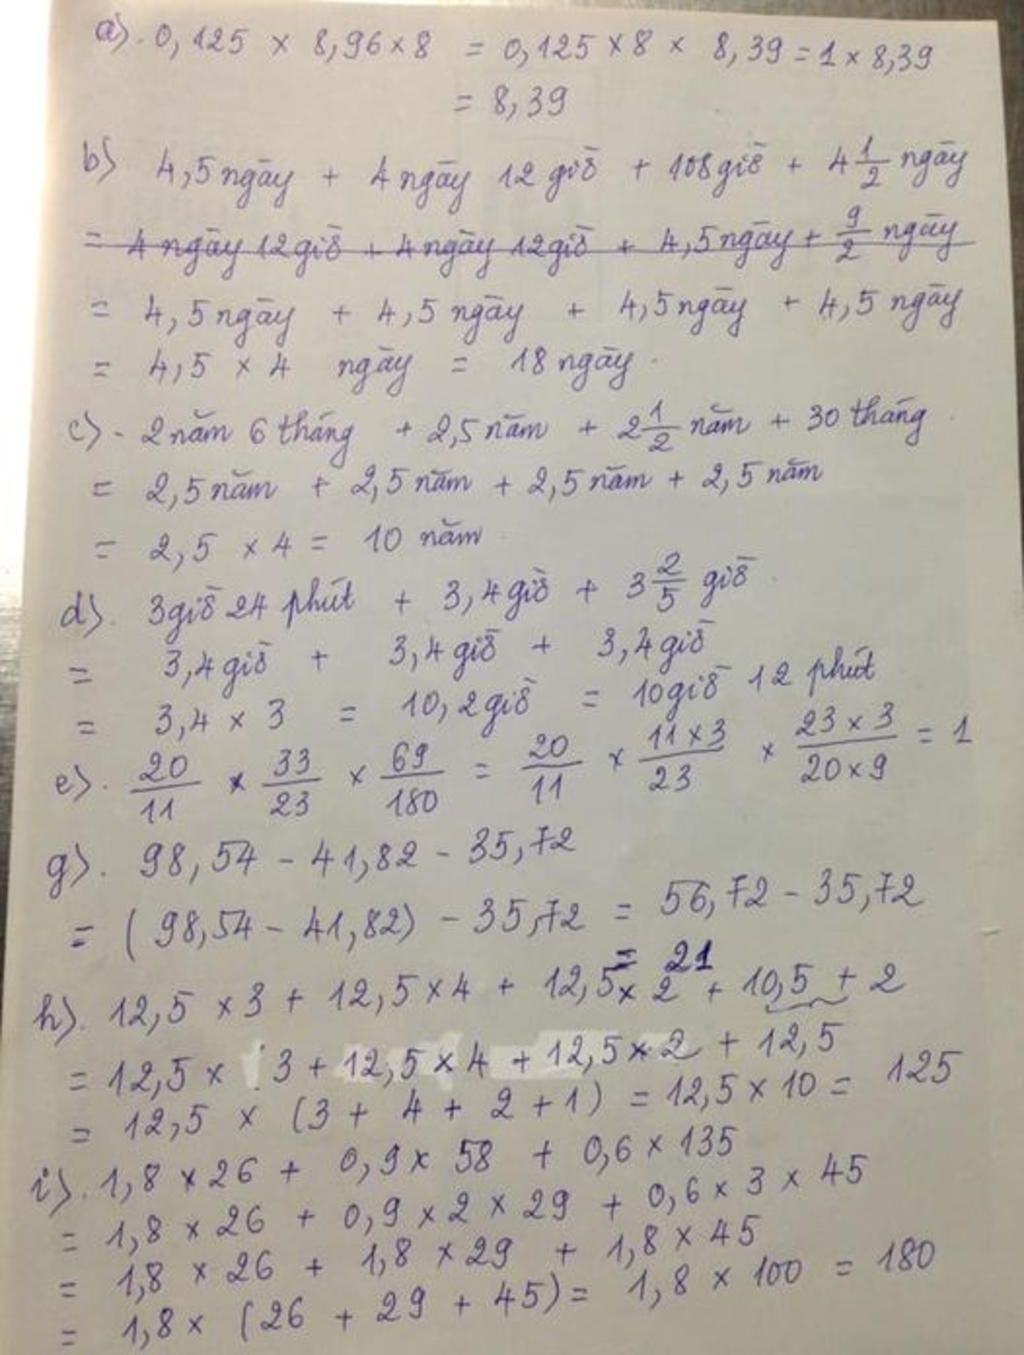 a). 0,125 × 8,96 × 8 = 0,125 × 8 × 8,39 = 1 × 8,39
= 8,39
b) 4,5 ngày + 4 ngày 12 giờ + 108 giờ + 4 1/2 ngày
= 4 ngày 12 giờ + 4 ngày 12 giờ + 4,5 ngày + 9/2 ngày
= 4,5 ngày + 4,5 ngày + 4,5 ngày + 4,5 ngày
= 4,5 × 4 ngày = 18 ngày.
c) - 2 năm 6 tháng + 2,5 năm + 2 1/2 năm + 30 tháng
= 2,5 năm + 2,5 năm + 2,5 năm + 2,5 năm
= 2,5 × 4 = 10 năm
d). 3 giờ 24 phút + 3,4 giờ + 3 2/5 giờ
= 3,4 giờ + 3,4 giờ + 3,4 giờ
= 3,4 × 3 = 10,2 giờ = 10 giờ 12 phút
e). 20/11 × 33/23 × 69/180 = 20/11 × 11 × 3/23 × 23 × 3/20 × 9 = 1
g). 98,54 - 41,82 - 35,72
= (98,54 - 41,82) - 35,72 = 56,72 - 35,72
= 21
h). 12,5 × 3 + 12,5 × 4 + 12,5 × 2 + 10,5 + 2
= 12,5 × 3 + 12,5 × 4 + 12,5 × 2 + 12,5
= 12,5 × (3 + 4 + 2 + 1) = 12,5 × 10 = 125
i). 1,8 × 26 + 0,9 × 58 + 0,6 × 135
= 1,8 × 26 + 0,9 × 2 × 29 + 0,6 × 3 × 45
= 1,8 × 26 + 1,8 × 29 + 1,8 × 45
= 1,8 × (26 + 29 + 45) = 1,8 × 100 = 180